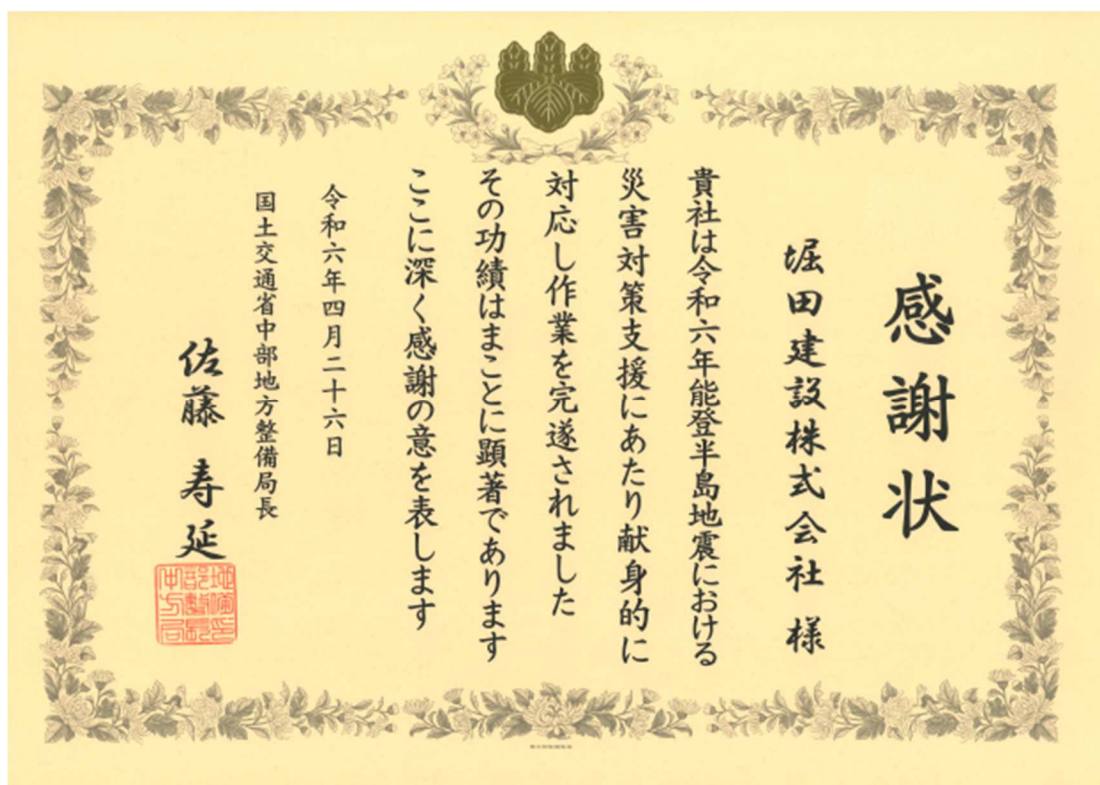 感謝状
堀田建設株式会社 様
貴社は令和六年能登半島地震における
災害対策支援にあたり献身的に
対応し作業を完遂されました
その功績はまことに顕著であります
ここに深く感謝の意を表します
令和六年四月二十六日
国土交通省中部地方整備局長
佐藤 寿延